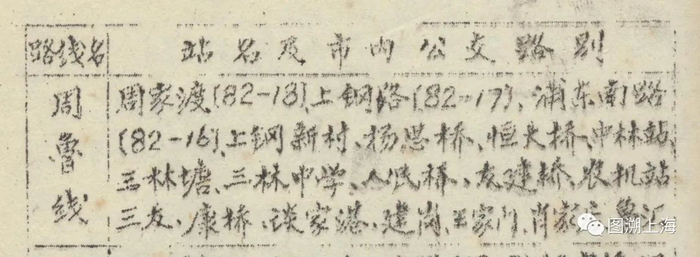 路线名 站名及市内公交路别
周鲁线
周家渡(82-18)上钢路(82-17)、浦东南路
(82-16)上钢新村、杨思桥、恒大桥、中林站
三林塘、三林中学、人民桥、友建桥、农机站
三友、康桥、谈家港、建岗、王家门、肖家 鲁汇
图溯上海